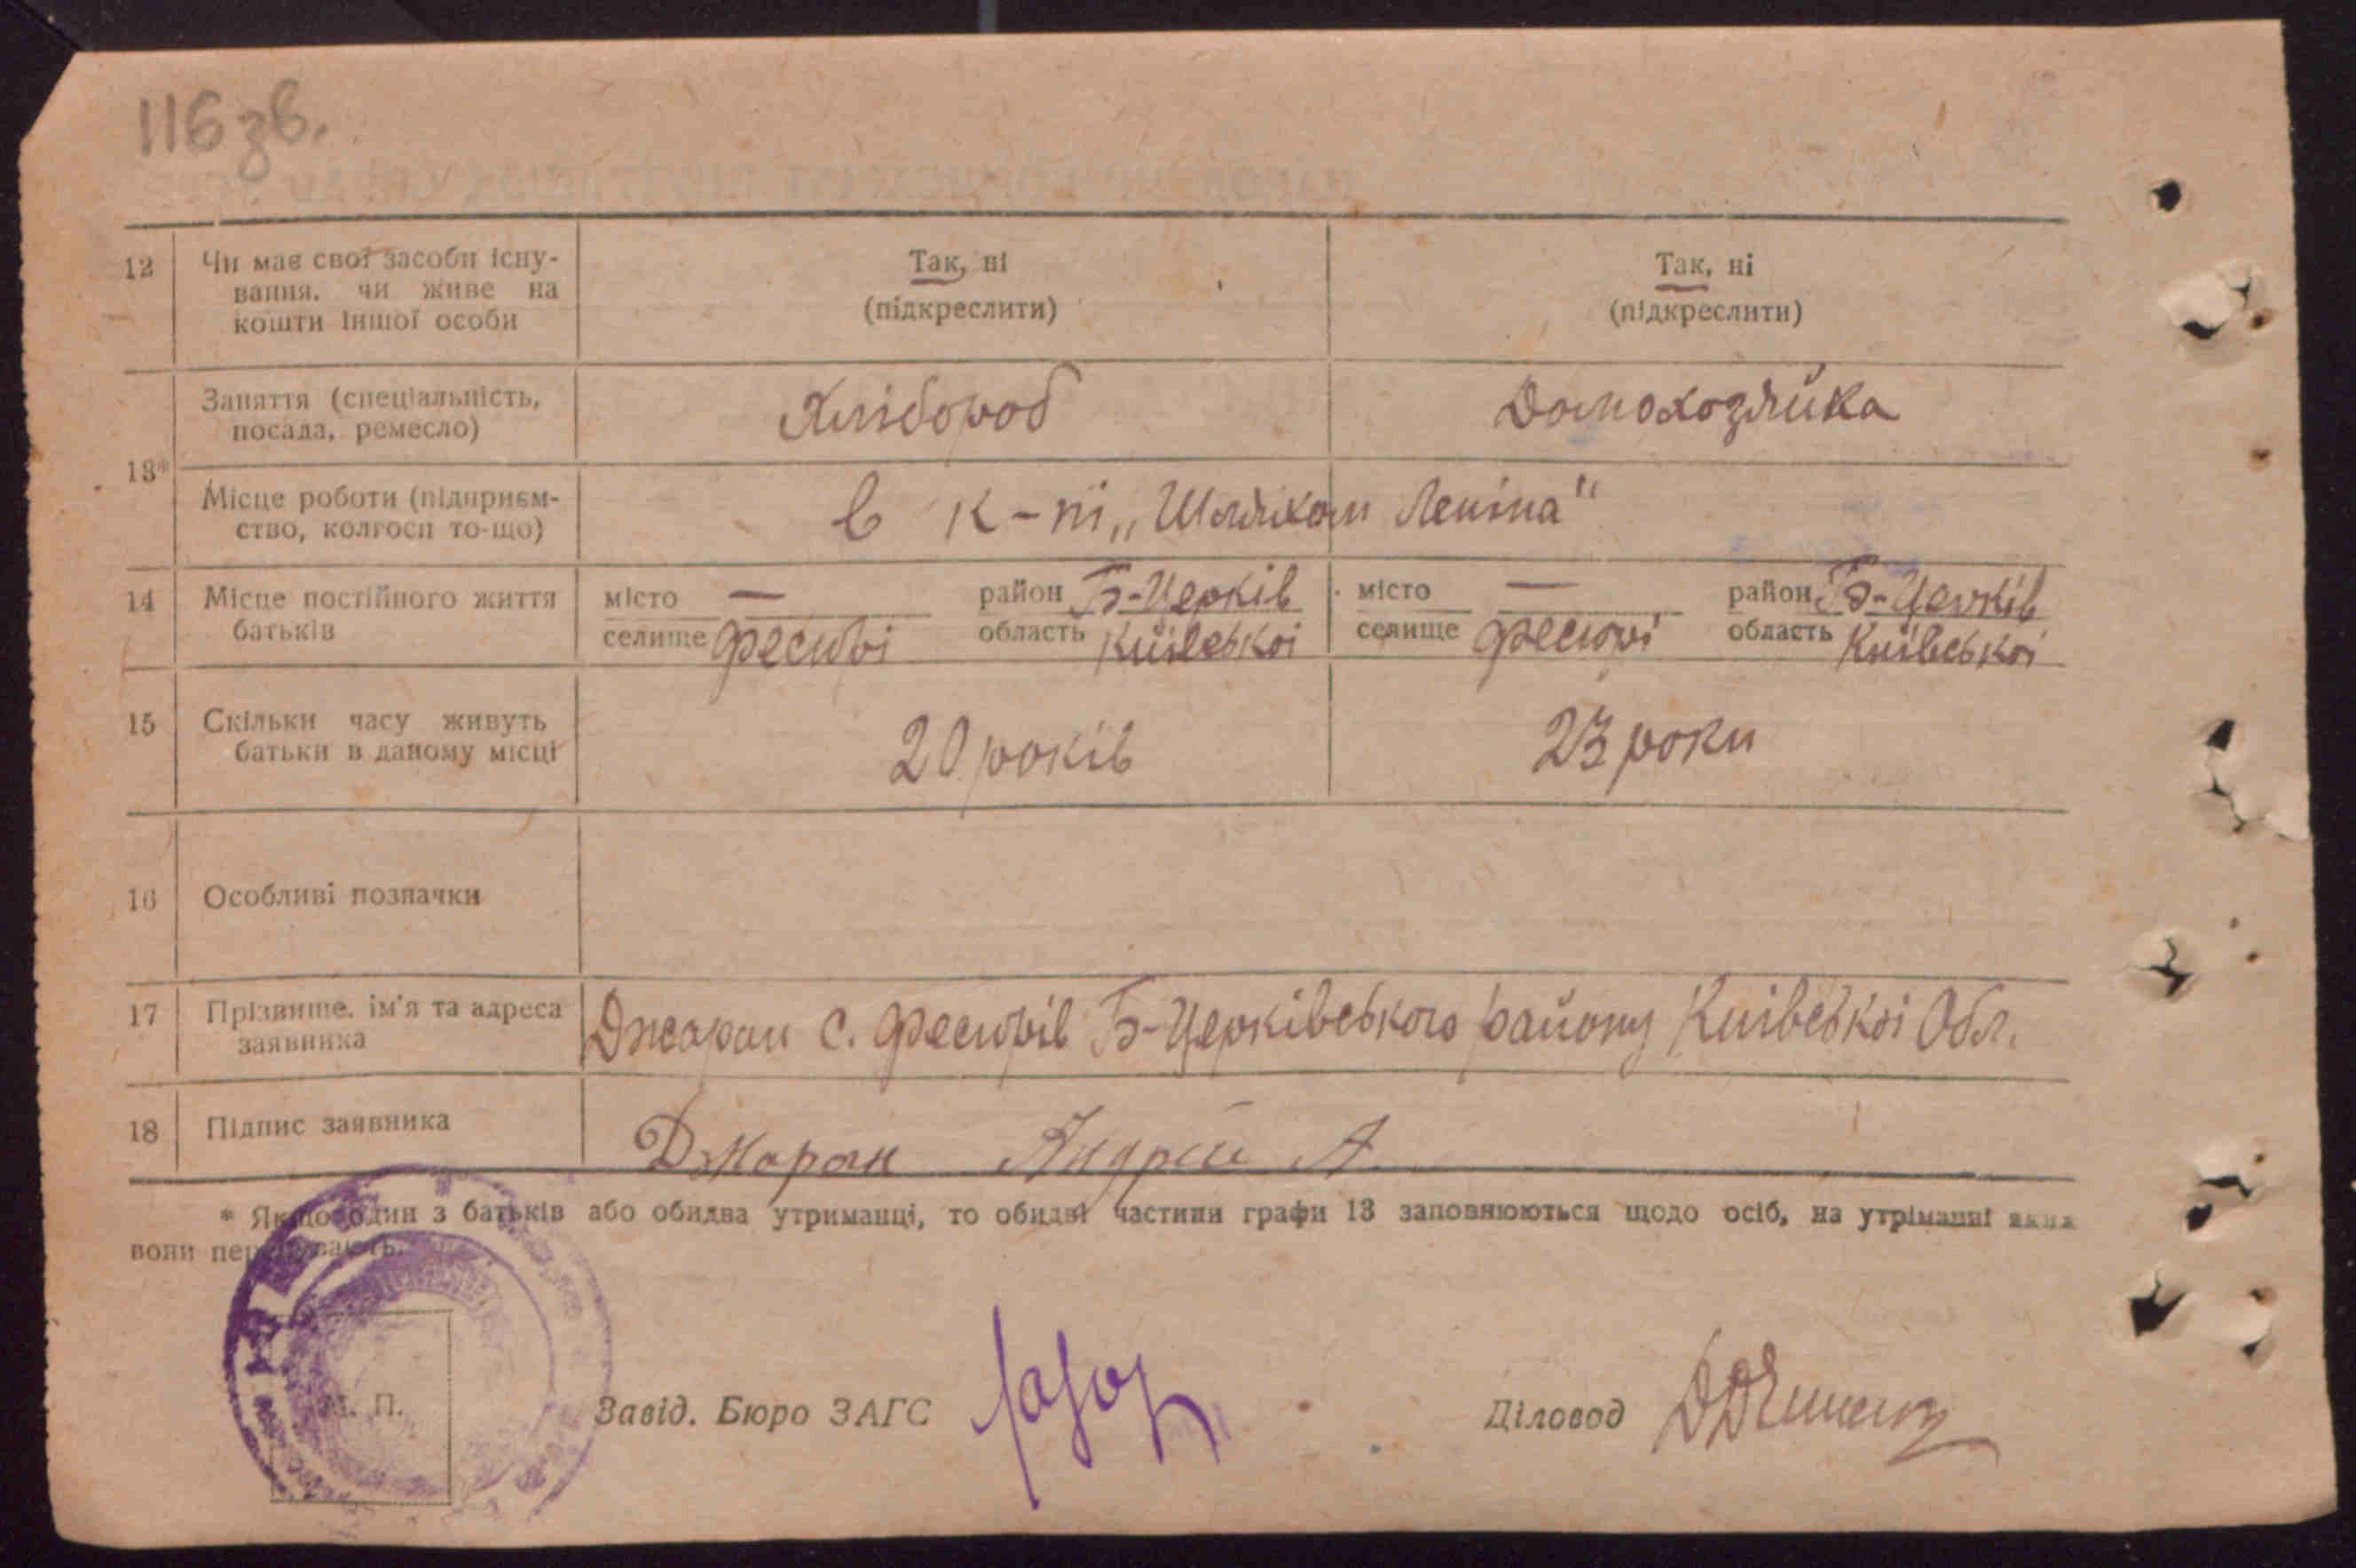 116 зв.
12 Чи має свої засоби існу- Так, ні Так, ні
вання, чи живе на (підкреслити) (підкреслити)
кошти іншої особи
Заняття (спеціальність, Хлібороб Домохозяйка
посада, ремесло)
13*
Місце роботи (підприєм- в к-пі „Шляхом Леніна"
ство, колгосп то-що)
14 Місце постійного життя місто — район Б-Церків місто — район Б-Церків
батьків селище Фесюрі область Київської селище Фесюрі область Київської
15 Скільки часу живуть 20 років 23 роки
батьки в даному місці
16 Особливі позначки
17 Прізвище, ім'я та адреса Джаран С. Фесюрів Б-Церківського району Київської Обл.
заявника
18 Підпис заявника Джаран Андрій А.
* Якщо один з батьків або обидва утриманці, то обидві частини графи 13 заповнюються щодо осіб, на утріманні яких
вони перебувають.
М. П. Завід. Бюро ЗАГС Діловод